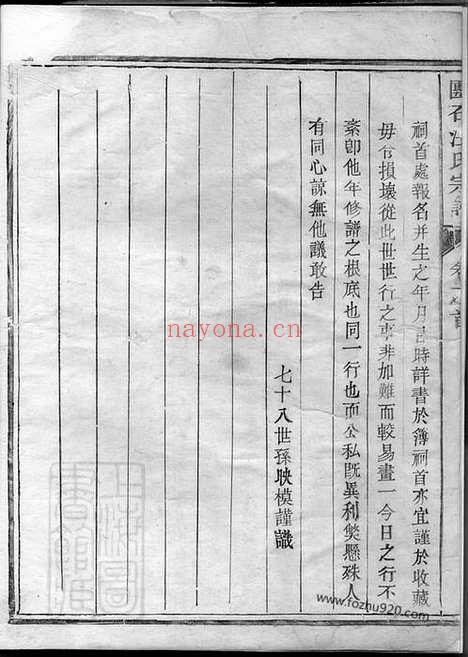 團石汪氏宗譜 卷之首
祠首處報名并生之年月日時詳書於簿祠首亦宜謹於收藏
毋令損壞從此世世行之事非加難而較易畫一今日之行不
紊卽他年修譜之根底也同一行也而公私旣異利獘懸殊人
有同心諒無他議敢告
七十八世孫映模謹識
nayona.cn
www.fozhu920.com